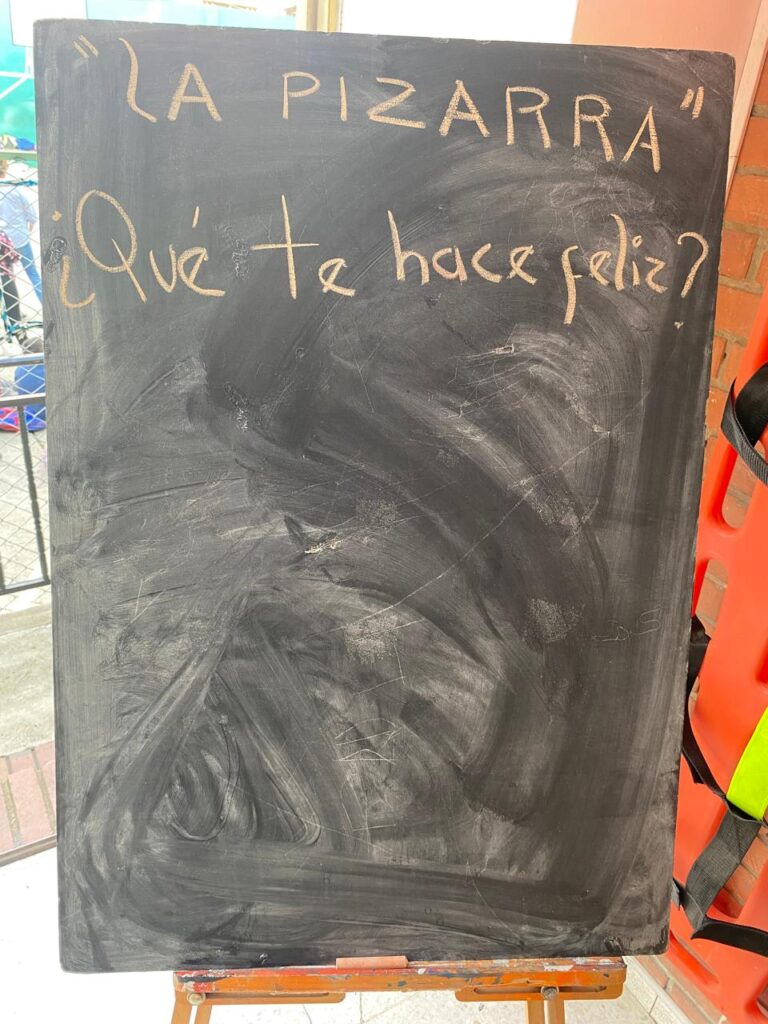 "LA PIZARRA"
¿Qué te hace feliz?